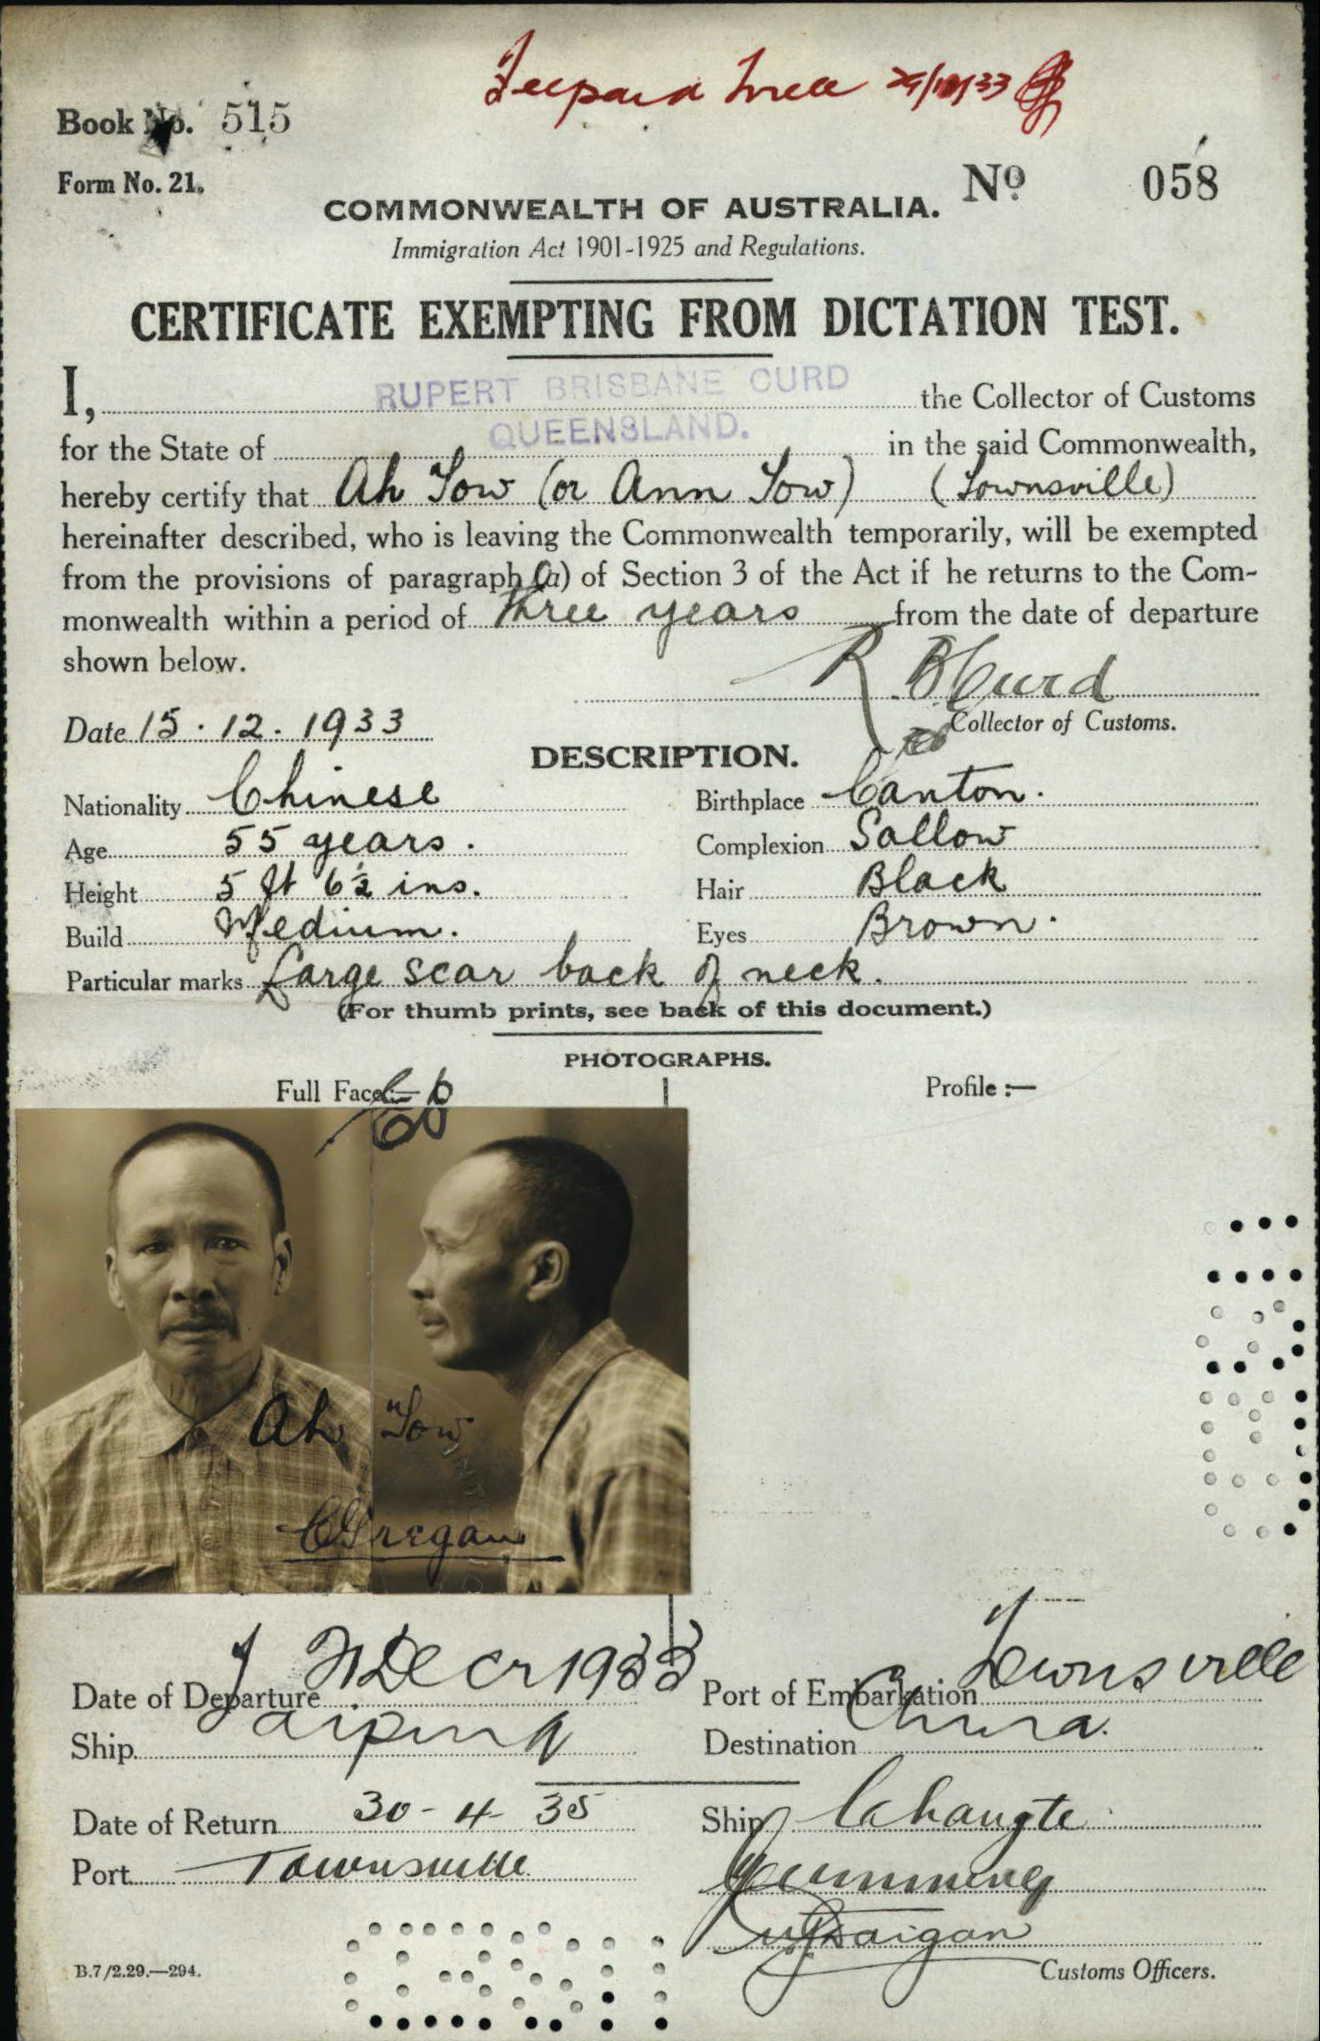 Book No. 515
Form No. 21.
COMMONWEALTH OF AUSTRALIA.
No 058
Immigration Act 1901-1925 and Regulations.
CERTIFICATE EXEMPTING FROM DICTATION TEST.
I, RUPERT BRISBANE CURD the Collector of Customs
for the State of QUEENSLAND. in the said Commonwealth,
hereby certify that Ah Tow (or Ann Tow) (Townsville)
hereinafter described, who is leaving the Commonwealth temporarily, will be exempted
from the provisions of paragraph (a) of Section 3 of the Act if he returns to the Com-
monwealth within a period of three years from the date of departure
shown below.
R B Curd
Date 15.12.1933
Collector of Customs.
DESCRIPTION.
Nationality Chinese
Birthplace Canton.
Age 55 years.
Complexion Sallow
Height 5 ft 6½ ins.
Hair Black
Build Medium.
Eyes Brown.
Particular marks Large scar back of neck.
(For thumb prints, see back of this document.)
PHOTOGRAPHS.
Full Face:—
Profile:—
Ah Tow
CGregan
Date of Departure Decr 1933
Port of Embarkation Townsville
Ship Taiping
Destination China.
Date of Return 30-4-35
Ship Changte
Port Townsville
Customs Officers.
B.7/2.29.—294.